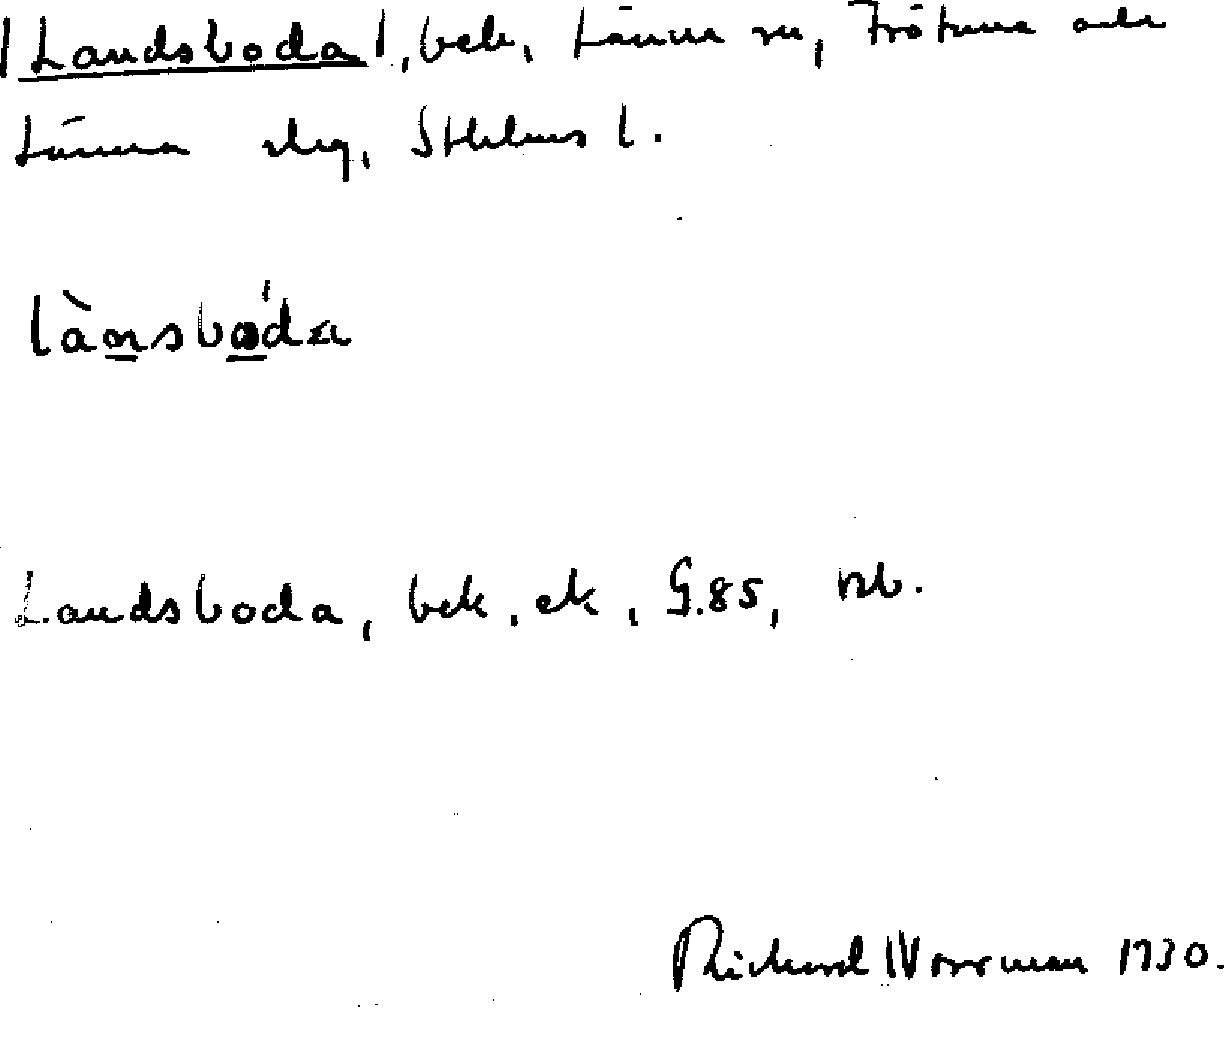 |Landsboda|, bek, Länna sn, Frötuna och
Länna slg, Sthlms l.
lànsbo̍da
Landsboda, bek. ek, G.85, rsb.
Richard Norrman 1930.